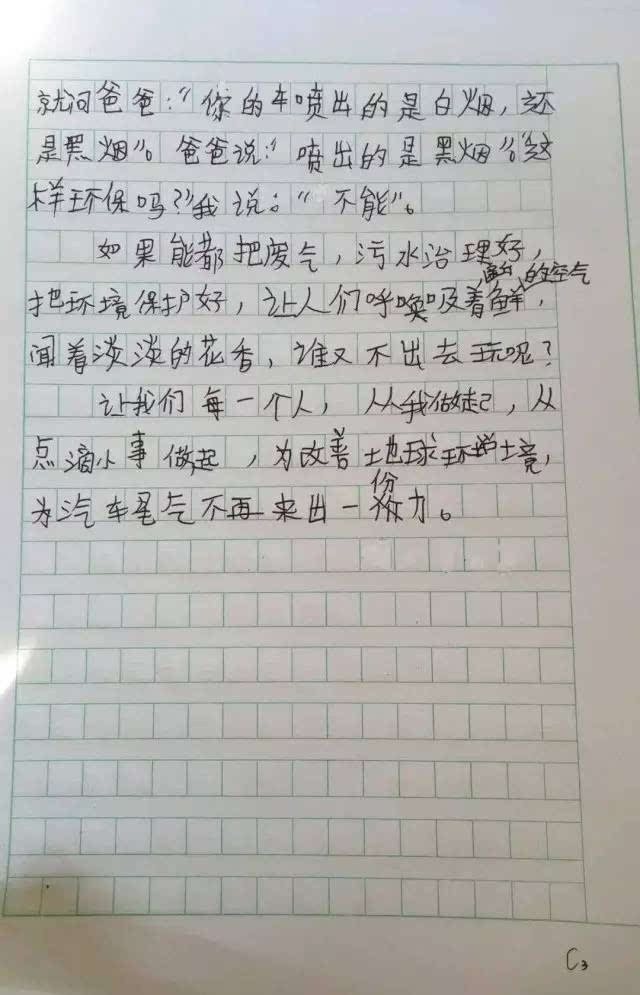 就问爸爸：“你的车喷出的是白烟，还
是黑烟”。爸爸说：“喷出的是黑烟”。“这
样环保吗？”我说：“不能”。
如果能都把废气，污水治理好，
把环境保护好，让人们呼唤吸着鲜的空气，
闻着淡淡的花香，谁又不出去玩呢？
让我们每一个人，从我做起，从
点滴小事做起，为改善地球环境，
为汽车尾气不再来出一份力。
C3